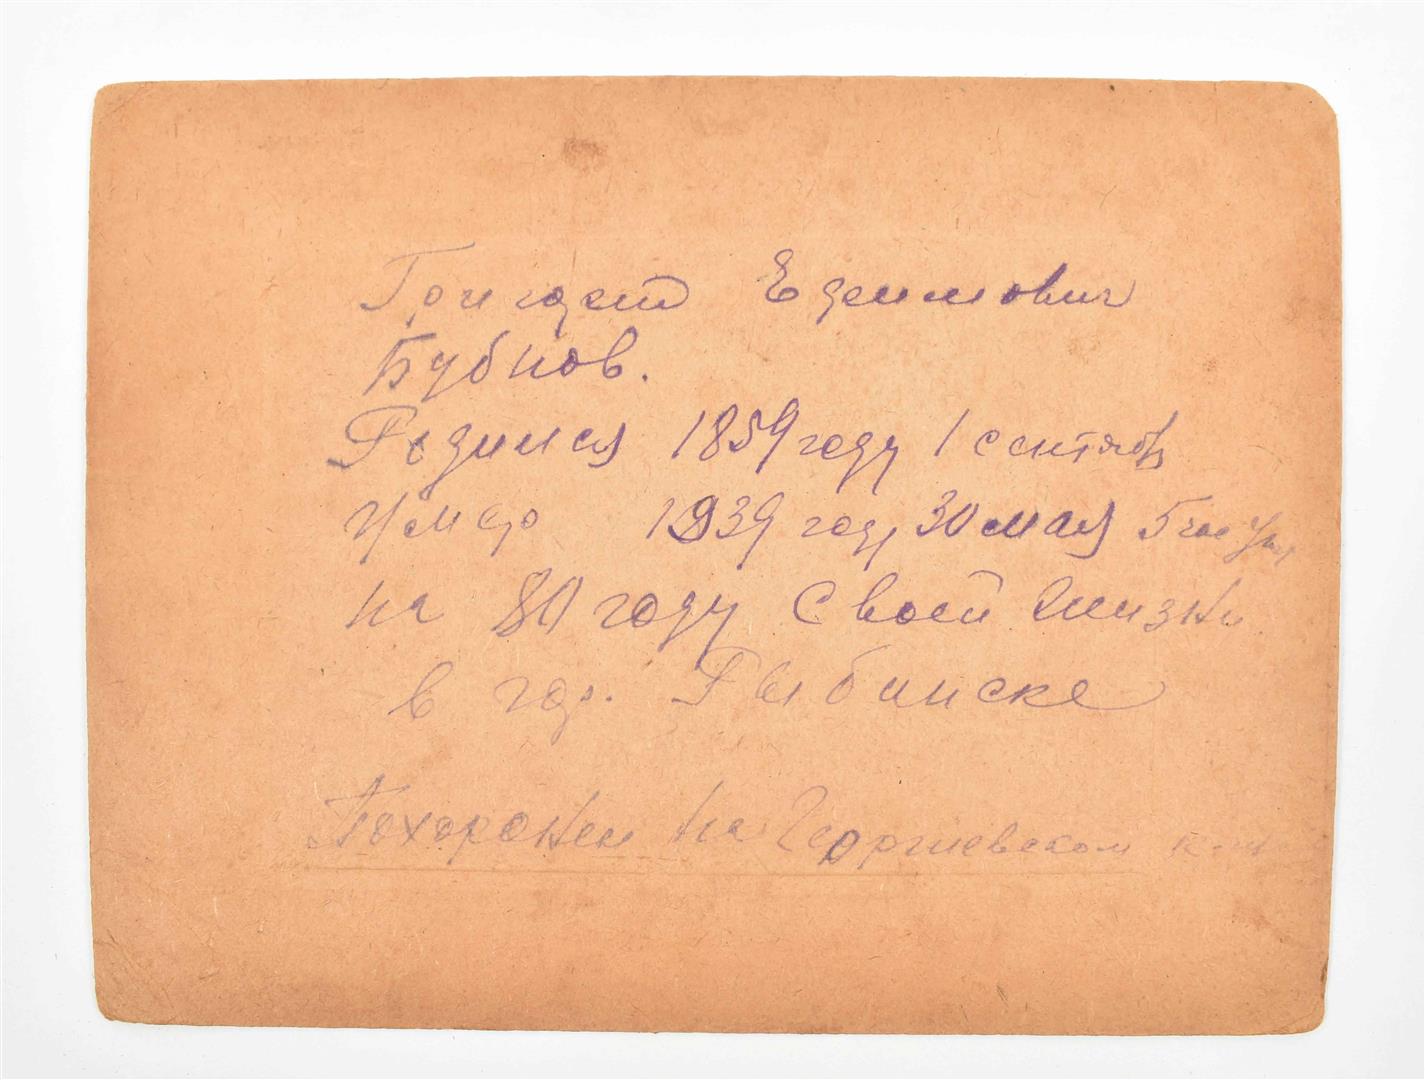 Григорий Ефимович
Бубнов.
Родился 1859 году 1 сентября
Умер 1939 году 30 мая 5 час
на 80 году своей жизни
в гор. Рыбинске
Похоронен на Георгиевском